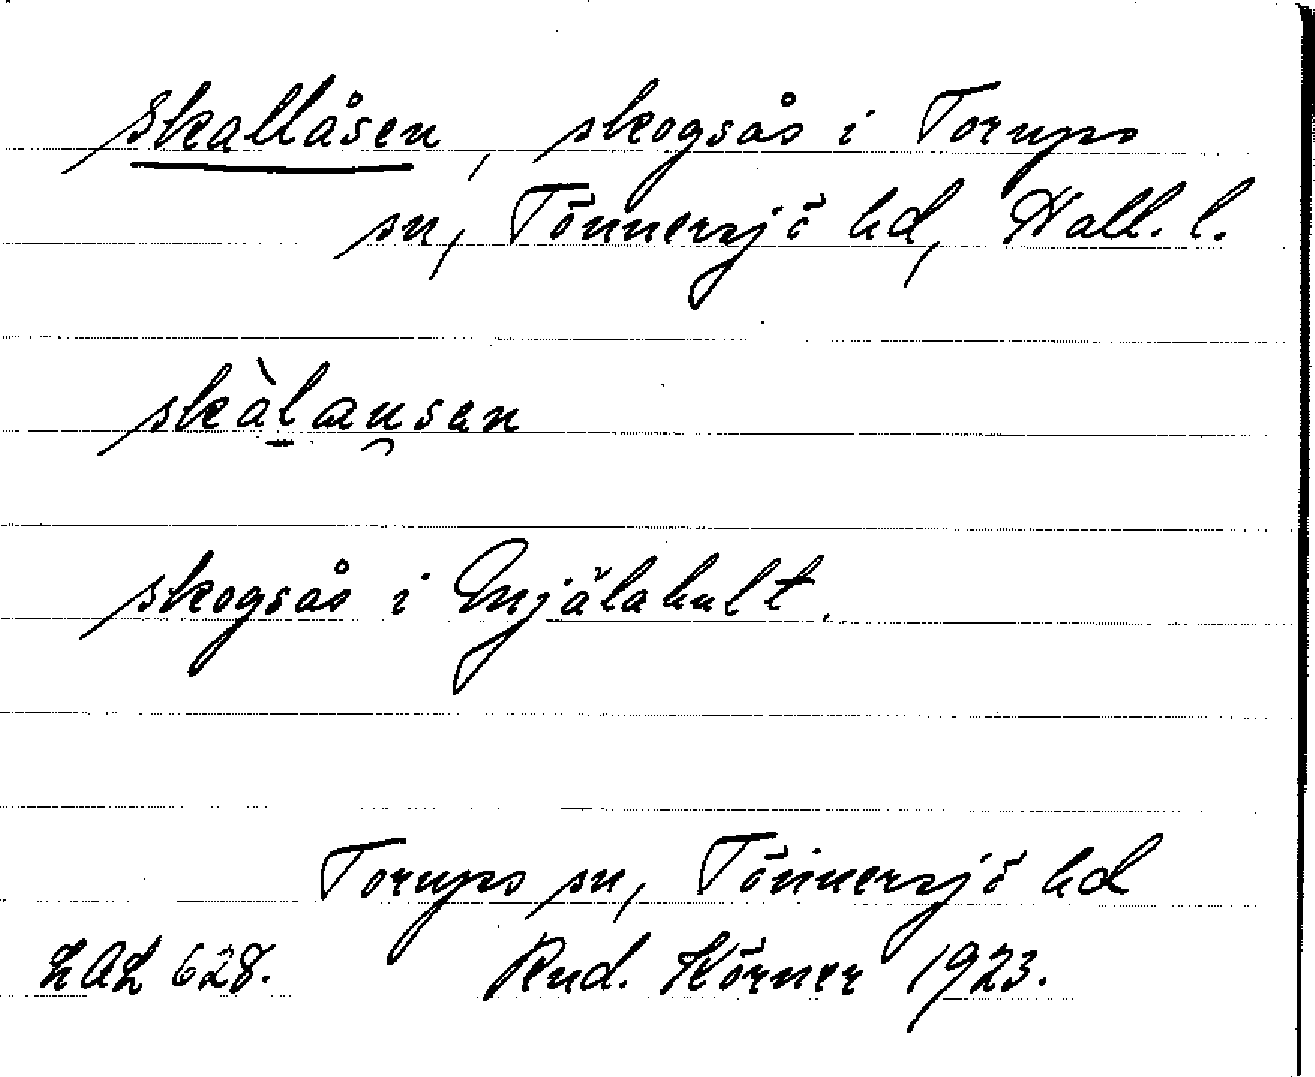 Skallåsen, skogsås i Torups
sn, Tönnersjö hd, Hall. l.
skàlausen
skogsås i Mjälahult.
Torups sn, Tönnersjö hd
LAL 628. Rud. Körner 1923.